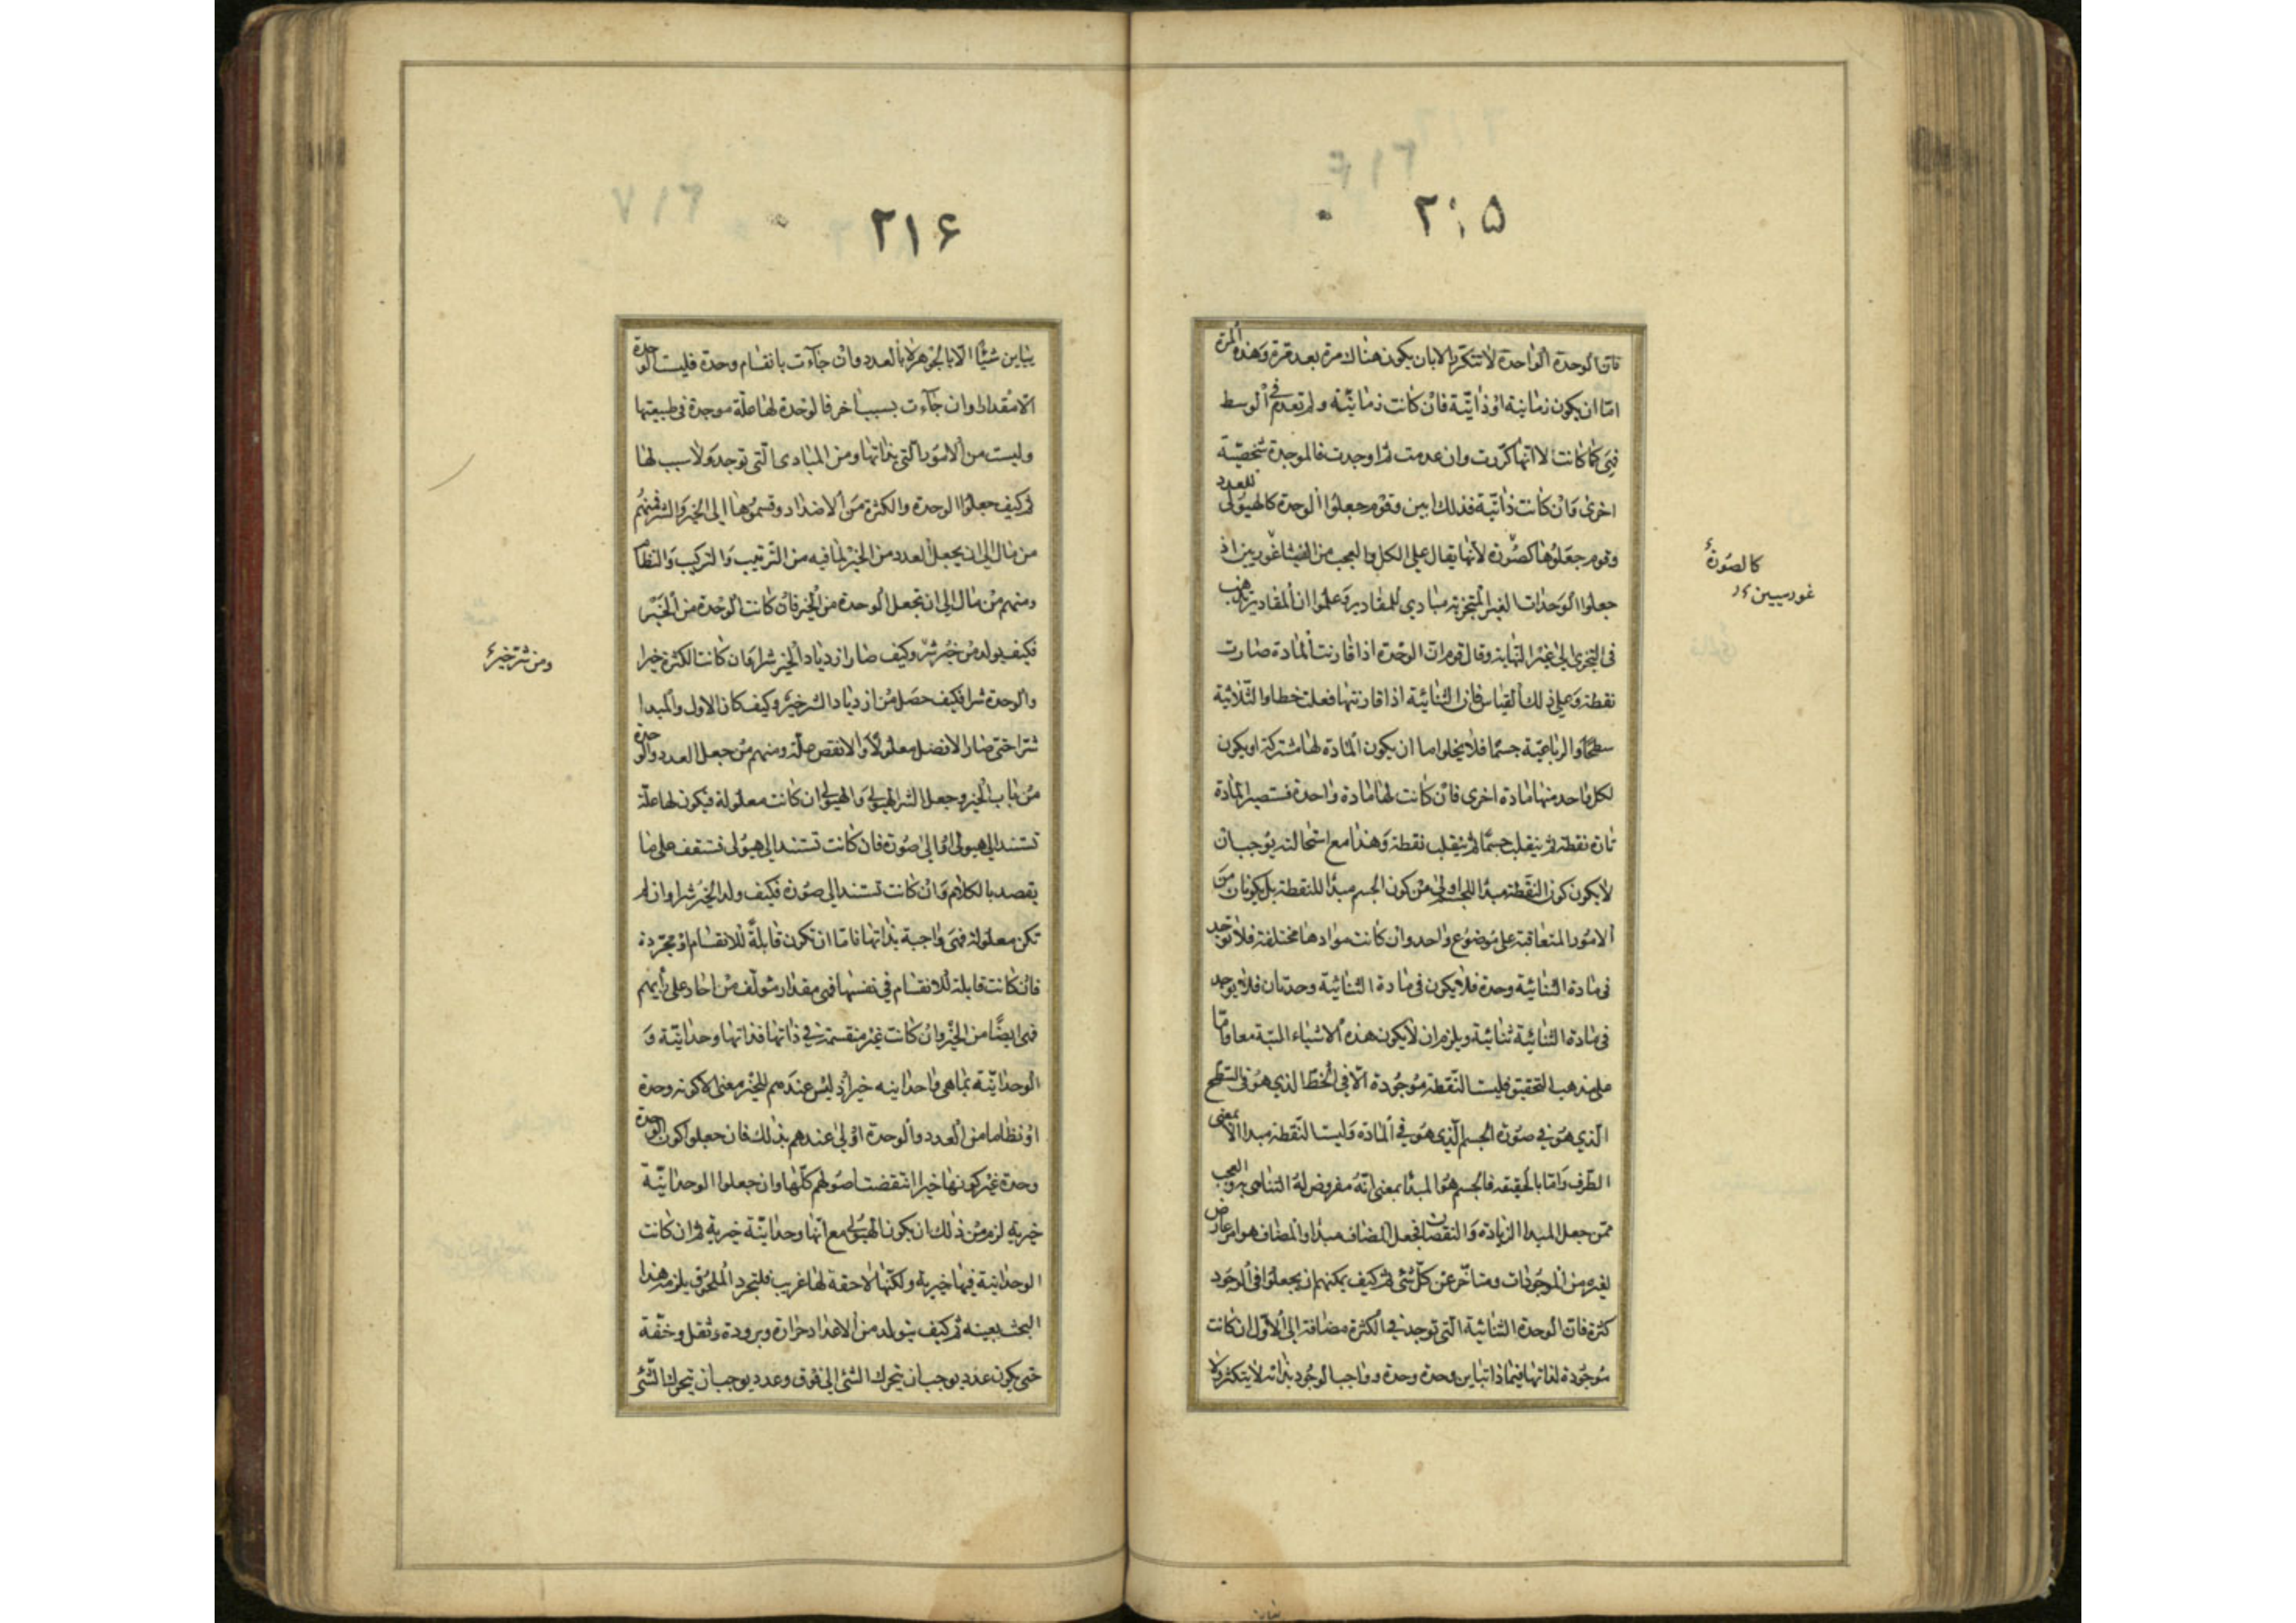 ٢١٥
فان الوحدة الواحدة لا تتكرر الا بان يكون هناك مرة بعد مرة وهذه المرة
اما ان يكون زمانية او ذاتية فان كانت زمانية ولم تعدم في الوسط
فهي كما كانت لا انها كررت وان عدمت ثم اوجدت فالموجدة شخصية
اخرى وان كانت ذاتية فذلك ابين وقوم جعلوا الوحدة كالهيولى للعدد
وقوم جعلوها كصورة لانها يقال على الكل والعجب من الفيثاغوريين اذ
جعلوا الوحدات الغير المتجزية مبادي للمقادير وعلموا ان المقادير تذهب
في التجزي الى غير النهاية وقال قوم ان الوحدة اذا قارنت المادة صارت
نقطة وعلى ذلك القياس فان الثنائية اذا قارنتها فعلت خطا والثلاثية
سطحا والرباعية جسما فلا يخلوا ما ان يكون المادة لها مشتركة او يكون
لكل واحد منها مادة اخرى فان كانت لها مادة واحدة فستصير المادة
تارة نقطة ثم ينقلب جسما ثم ينقلب نقطة وهذا مع استحالته يوجب ان
لا يكون كون النقطة مبدا للجسم اولى من كون الجسم مبدا للنقطة بل يكونان من
الامور المتعاقبة على موضوع واحد وان كانت موادها مختلفة فلا توجد
في مادة الثنائية وحدة فلا يكون في مادة الثنائية وحدتان فلا يوجد
في مادة الثنائية ثنائية ويلزم ان لا يكون هذه الاشياء البتة معا واما
على مذهب التحقيق فليست النقطة موجودة الا في الخط الذي هو في السطح
الذي هو في صورة الجسم الذي هو في المادة وليست النقطة مبدا الا بمعنى
الطرف واما بالحقيقة فالجسم هو المبدا بمعنى انه مفروض له التناهي به والعجب
ممن جعل المبدا الزيادة والنقصان فجعل المضاف مبدا والمضاف هو امر عارض
لغيره من الموجودات ومتاخر عن كل شئ ثم كيف يمكنهم ان يجعلوا في الوجود
كثرة فان الوحدة الثنائية التي توجد في الكثرة مضافة الى الاول ان كانت
موجودة لذاتها فبماذا تباين وحدة وحدة وواجب الوجود بذاته لا يتكثر ولا
كالصورة
غوريين
٢١۶
يباين شيئا الا بالجوهر لا بالعدد وان جاءت بانقسام وحدة فليست الوحدة
الا مقدارا وان جاءت بسبب اخر فالوحدة لها علة موجدة في طبيعتها
وليست من الامور التي بذاتها ومن المبادى التي توجد ولا سبب لها
ثم كيف جعلوا الوحدة والكثرة من الاضداد وقسموها الى الخير والشر فمنهم
من مال الى ان يجعل العدد من الخير لما فيه من الترتيب والتركيب والنظام
ومنهم من مال الى ان تجعل الوحدة من الخير فان كانت الوحدة من الخير
فكيف يولد من خير شر وكيف صار ازدياد الخير شرا وان كانت الكثرة خيرا
والوحدة شرا فكيف حصل من ازدياد الشر خير وكيف كان الاول والمبدا
شرا حتى صار الافضل معلولا والانقص علة ومنهم من جعل العدد والوحدة
من باب الخير وجعل الشر الهيولى والهيولى ان كانت معلولة فيكون لها علة
تستند الى هيولى او الى صورة فان كانت تستند الى هيولى فستقف على ما
يقصد بالكلام وان كانت تستند الى صورة فكيف ولد الخير شرا وان لم
تكن معلولة فهي واجبة بذاتها فاما ان تكون قابلة للانقسام او مجردة
فان كانت قابلة للانقسام في نفسها فهي مقدار مؤلف من احاد على رأيهم
فهي ايضا من الخير وان كانت غير منقسمة في ذاتها فذاتها وحدانية و
الوحدانية بما هي واحدانيه خير اذ ليس عندهم للخير معنى الا كونه وحدة
او نظاما من العدد والوحدة اولى عندهم بذلك فان جعلوا كون الوحدة
وحدة غير كونها خيرا انتقضت اصولهم كلها وان جعلوا الوحدانية
خيرية لزم من ذلك ان يكون الهيولى مع انها وحدانية خيرية ثم ان كانت
الوحدانية فيها خيرية ولكنها لاحقة لها غريب فلتجرد الملحوق يلزمه هذا
البحث بعينه ثم كيف يتولد من الاعداد حرارة وبرودة وثقل وخفة
حتى يكون عدد يوجب ان يتحرك الشئ الى فوق وعدد يوجب ان يتحرك الشئ
ومن شر خير